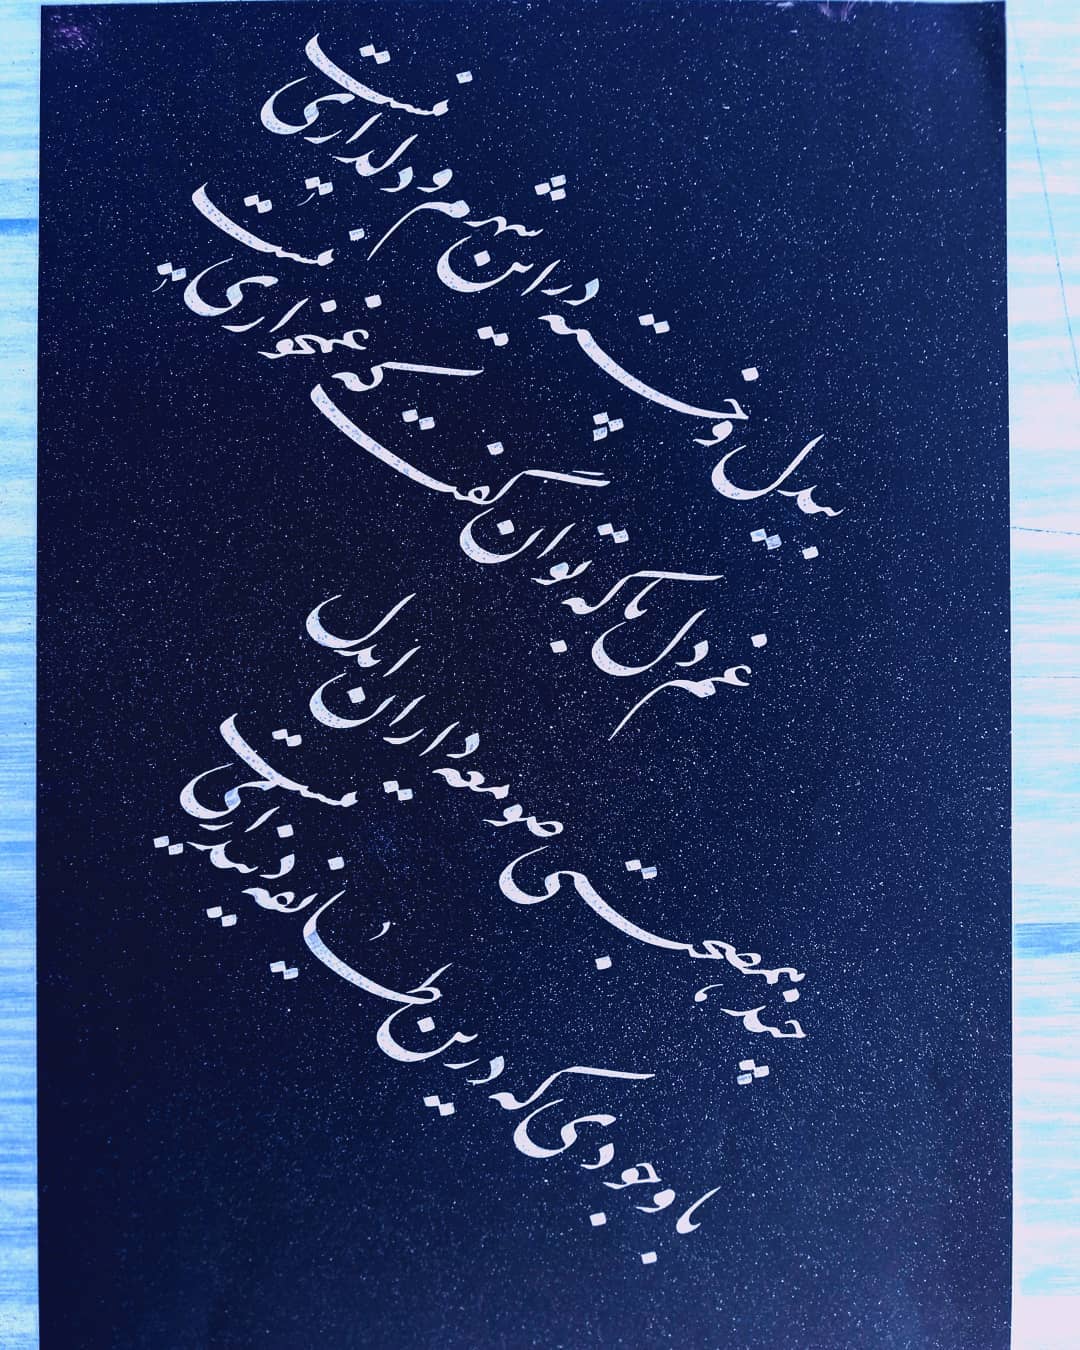 بیدل و خسته در این شهرم و دلداری نیست
غم دل با که توان گفت که غمخواری نیست
چند، بهمصحبتی صومعه داران ایدل
با وجودی که درین طایفه دینداری نیست